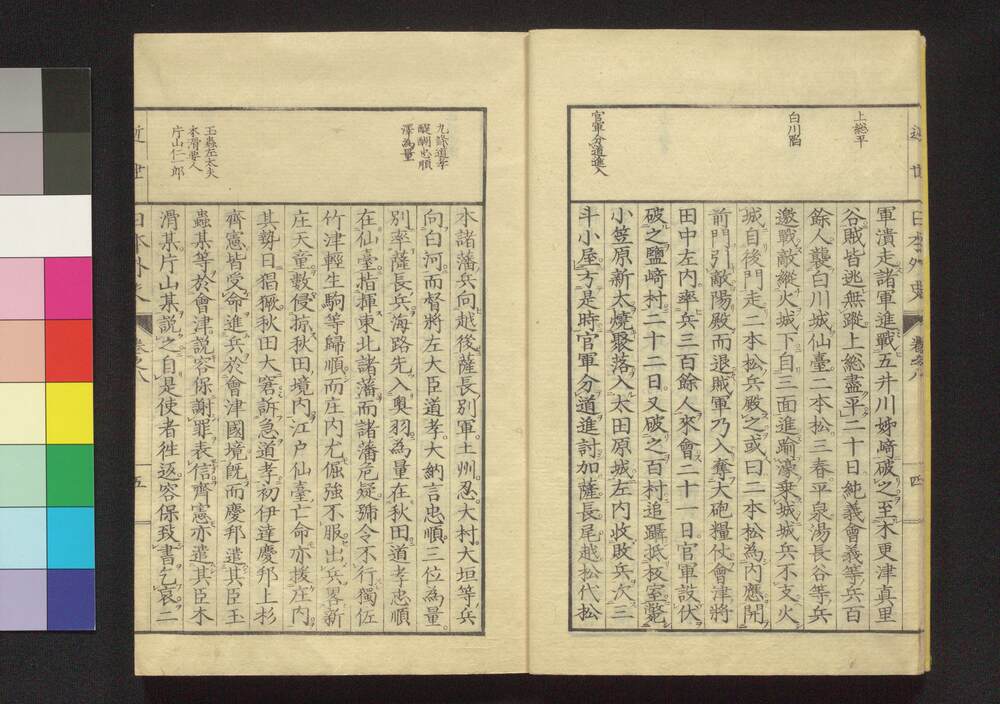 上總平
白川陷
官軍分道進入
軍潰走諸軍進戰五井川姊﨑破之至木更津真里
谷賊皆逃無蹤上總盡平二十日純義會義等兵百
餘人襲白川城仙臺二本松三春平泉湯長谷等兵
邀戰敵縱火城下自三面進踰濠乗城城兵不支火
城自後門走二本松兵殿之或曰二本松為內應開
前門引敵陽殿而退賊軍乃入奪大砲糧仗會津將
田中左內率兵三百餘人來會二十一日官軍設伏
破之鹽﨑村二十二日又破之百村追躡抵板室斃
小笠原新太燒聚落入太田原城左內收敗兵次三
斗小屋方是時官軍分道進討加薩長尾越松代松
四
九條道孝
醍醐忠順
澤為量
玉蟲左太夫
木滑要人
片山仁一郎
本諸藩兵向越後薩長別軍土州忍大村大垣等兵
向白河而督將左大臣道孝大納言忠順三位為量
別率薩長兵海路先入奧羽為量在秋田道孝忠順
在仙臺指揮東北諸藩而諸藩危疑號令不行獨佐
竹津輕生駒等歸順而庄內尤倔強不服出兵畧新
庄天童數侵掠秋田境內江戶仙臺亡命亦援庄內
其勢日猖獗秋田大窘訴急道孝初伊達慶邦上杉
齊憲皆受命進兵於會津國境既而慶邦遣其臣玉
蟲某等於會津說容保謝罪表信齊憲亦遣其臣木
滑某片山某說之自是使者徃返容保致書乞哀二
近世
日本外史
卷之八
五